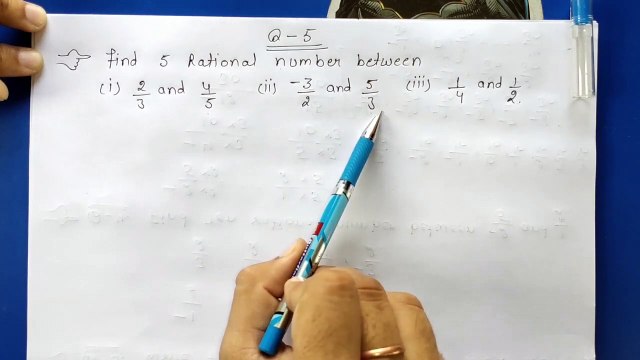 Q-5
find 5 Rational number between
(i) 2/3 and 4/5 (ii) -3/2 and 5/3 (iii) 1/4 and 1/2.